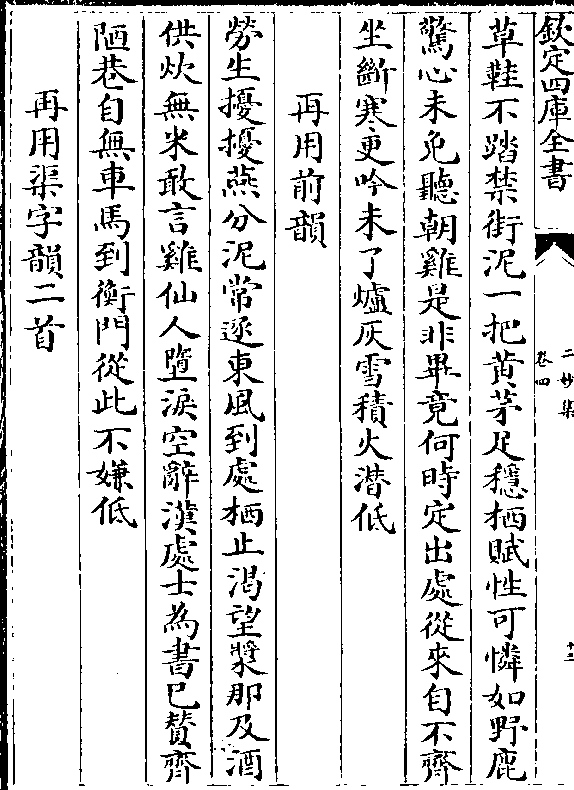 欽定四庫全書
二妙集
卷四
十二
草鞋不踏禁街泥一把黄茅足穩栖賦性可憐如野鹿
驚心未免聽朝雞是非畢竟何時定出處從來自不齊
坐斷寒更吟未了爐灰雪積火潜低
再用前韻
勞生擾擾燕分泥常逐東風到處栖止渴望漿那及酒
供炊無米敢言雞仙人墮淚空辭漢處士為書已賛齊
陋巷自無車馬到衡門從此不嫌低
再用渠字韻二首